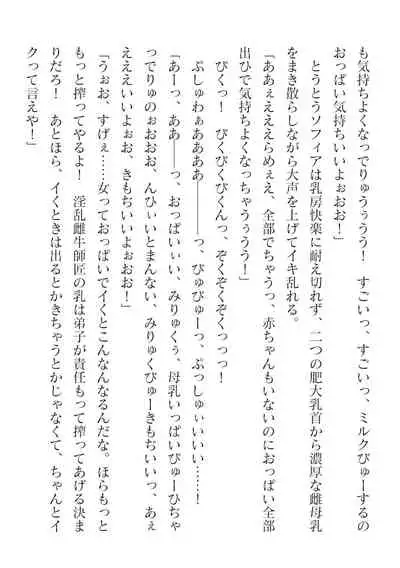 も気持ちよくなっでりゅうぅうう！　すごいっ、すごいっ、ミルクびゅーするの
おっぱい気持ちいいよぉおお！」
　とうとうソフィアは乳房快楽に耐え切れず、二つの肥大乳首から濃厚な雌母乳
をまき散らしながら大声を上げてイキ乱れる。
「ああぇえええらめぇえ、全部でちゃうっ、赤ちゃんもいないのにおっぱい全部
出ひで気持ちよくなっちゃうぅうう！」
　びくっ！　びくびくびくんっ、ぞくぞくぞくっっっ！
　ぷしゅわぁああああ――っ、びゅびゅーっ、ぷっしゅぃいいい……！
「あーっ、ああ――っ、おっぱいぃい、みりゅくぅ、母乳いっぱいびゅーひちゃ
っでりゅのぉおおお、んひぃいとまんない、みりゅくびゅーきもちいいっ、あぇ
えええいいよぉお、きもちいいよぉおお！」
「うぉお、すげぇ……女っておっぱいでイクとこんなんなるんだな。ほらもっと
もっと搾ってやるよ！　淫乱雌牛師匠の乳は弟子が責任もって搾ってあげる決ま
りだろ！　あとほら、イくときは出るとかきちゃうとかじゃなくて、ちゃんとイ
クって言えや！」